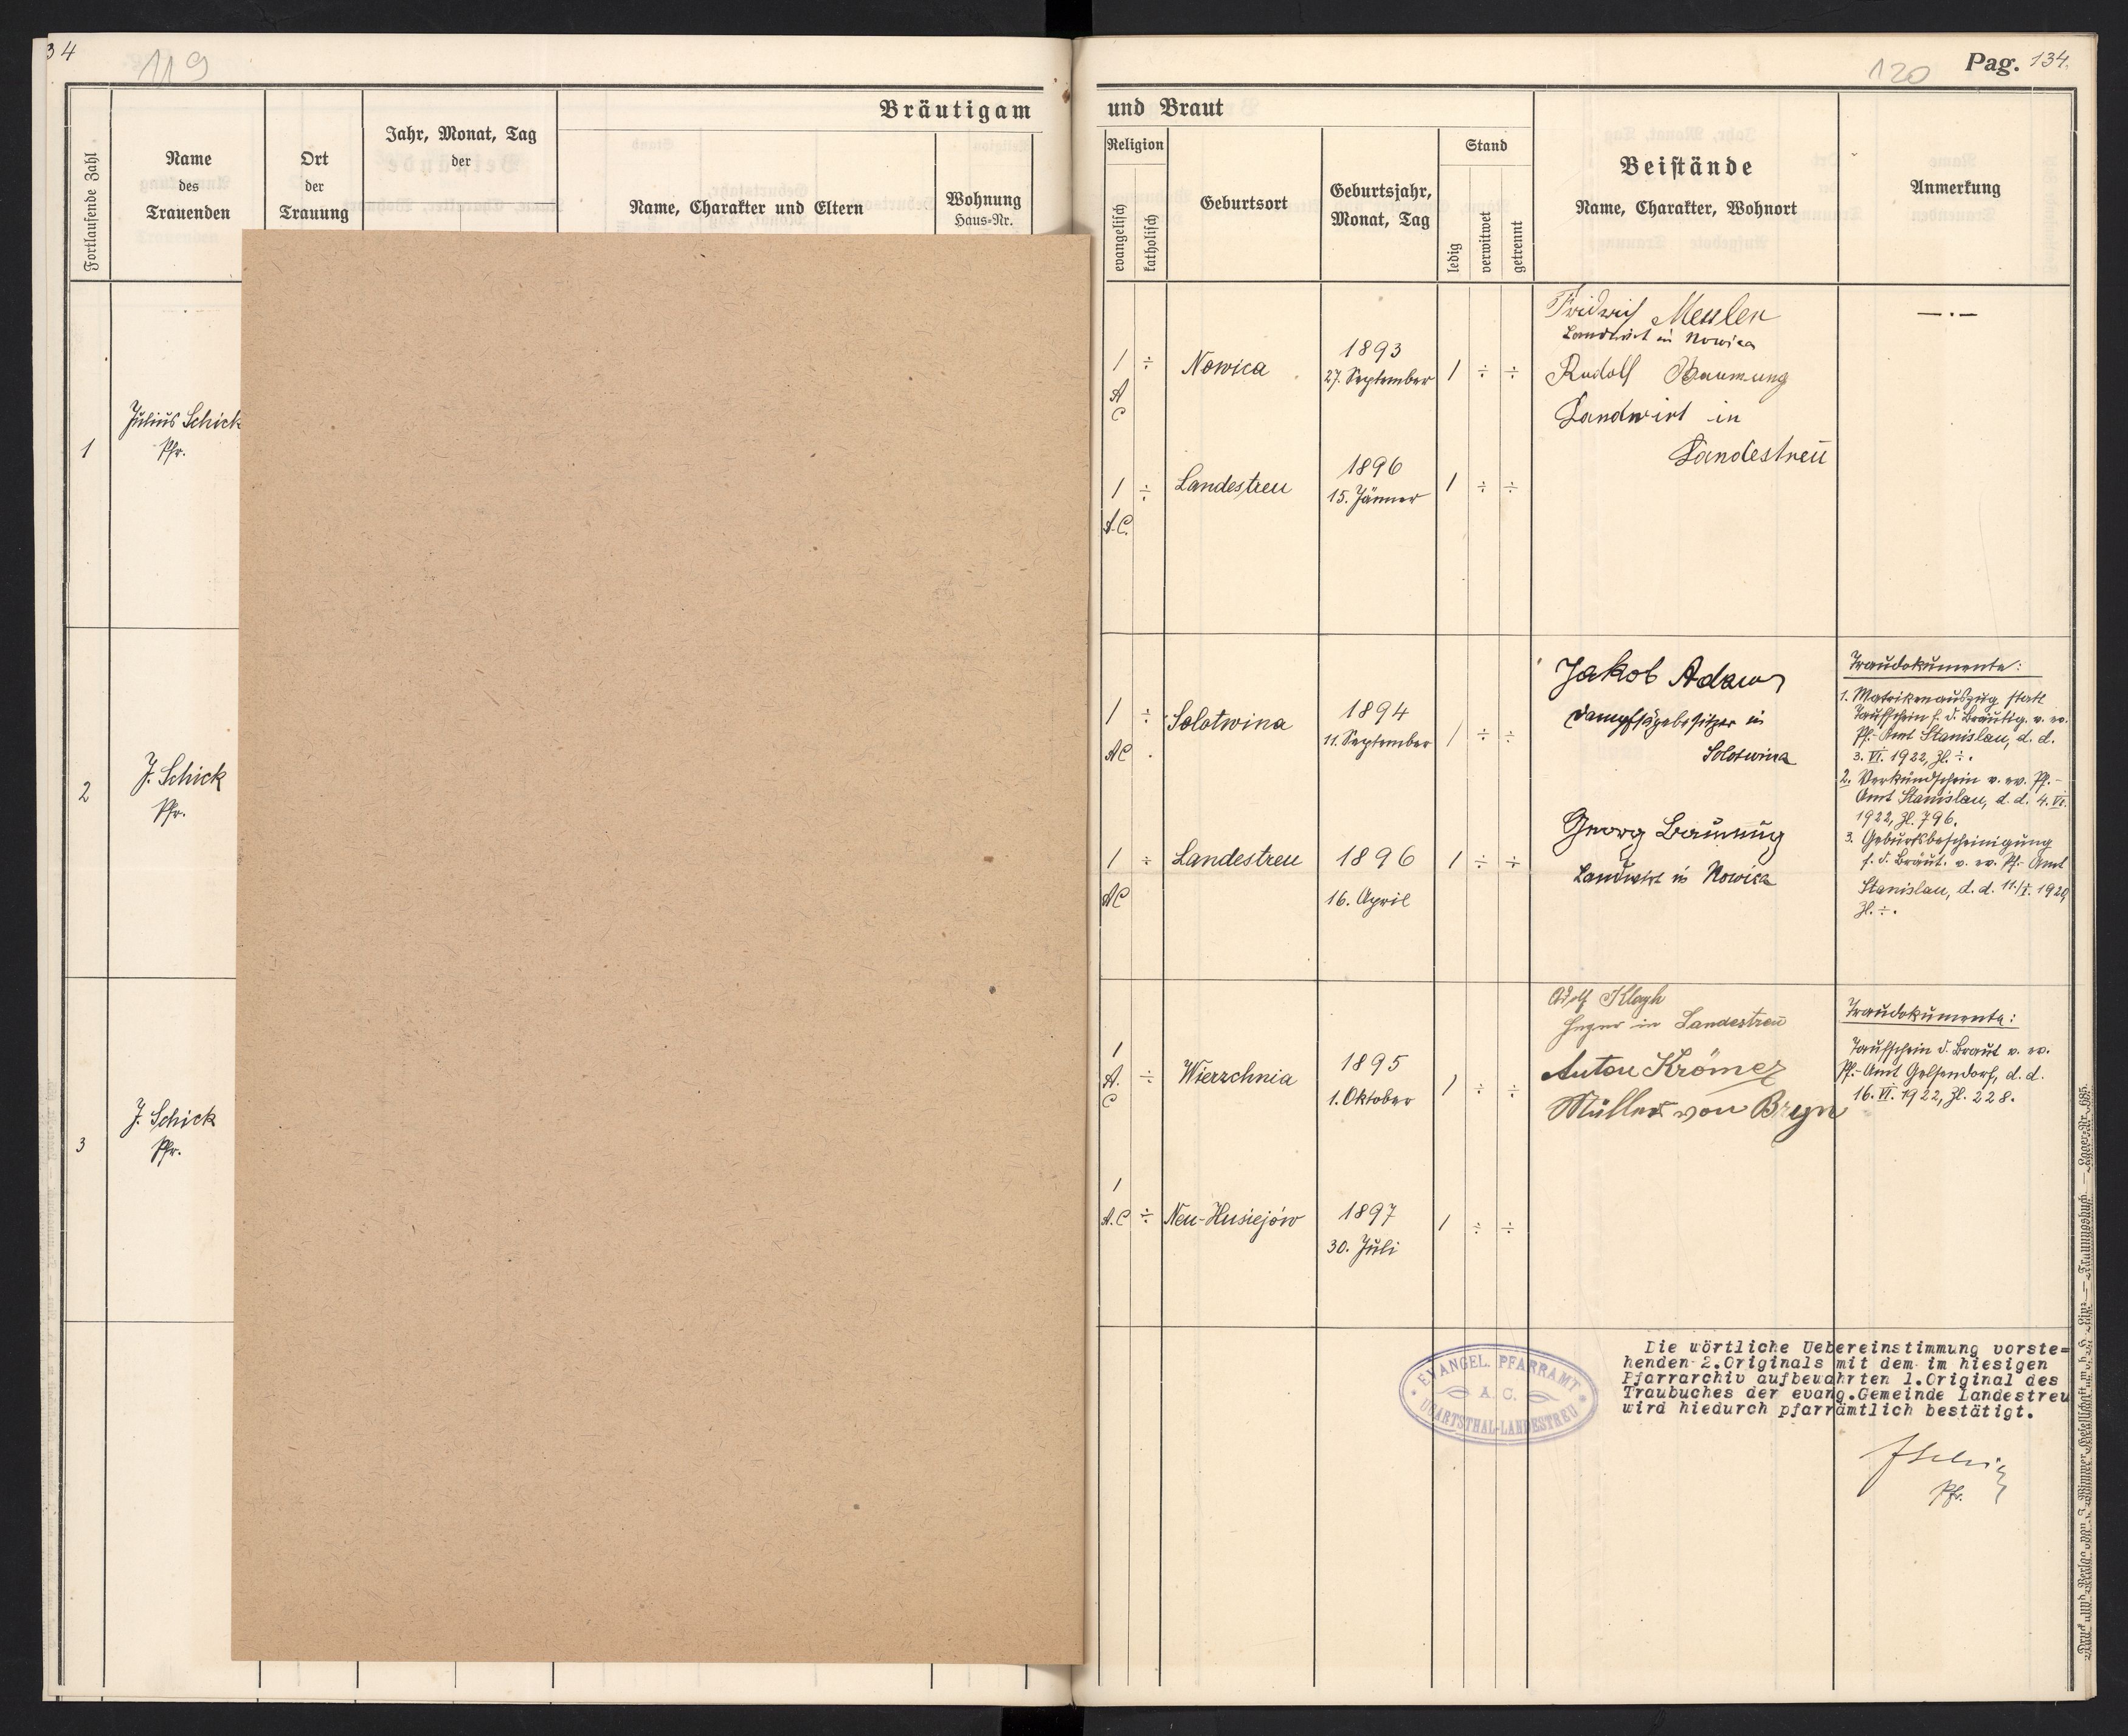 34
119
Bräutigam
Fortlaufende Zahl
Name
des
Trauenden
Ort
der
Trauung
Jahr, Monat, Tag
der
Name, Charakter und Eltern
Wohnung
Haus-Nr.
1
Julius Schick
Pfr.
2
J. Schick
Pfr.
3
J. Schick
Pfr.
120
Pag. 134.
und Braut
Religion
evangelisch
katholisch
Geburtsort
Geburtsjahr,
Monat, Tag
Stand
ledig
verwitwet
getrennt
Beistände
Name, Charakter, Wohnort
Anmerkung
1 ÷ Nowica 1893 1 ÷ ÷
A 27. September
C
1 ÷ Landestreu 1896 1 ÷ ÷
A.C. 15. Jänner
Landwirt in Nowica
Rudolf Baumung
Landwirt in
Landestreu
— . —
1 ÷ Solotwina 1894 1 ÷ ÷
AC 11. September
1 ÷ Landestreu 1896 1 ÷ ÷
AC 16. April
Jakob Adam
Dampfsägebesitzer in
Solotwina
Georg Baumung
Landwirt in Nowica
Traudokumente:
1. Matrikenauszug statt
Taufschein f. d. Bräutig. v. ev.
Pf.-Amt Stanislau, d. d.
3. VI. 1922, Zl. ÷.
2. Verkündschein v. ev. Pf.-
Amt Stanislau, d. d. 4. VI.
1922, Zl. 796.
3. Geburtsbescheinigung
f. d. Bräut. v. ev. Pf.-Amt
Stanislau, d. d. 11./I. 1920,
Zl. ÷.
1 ÷ Wierzchnia 1895 1 ÷ ÷
A. 1. Oktober
C
1
A.C ÷ Neu-Husiejów 1897 1 ÷ ÷
30. Juli
Adolf
Heger in Landestreu
Anton Krömer
Müller von Bryn
Traudokumente:
Taufschein d. Braut v. ev.
Pf.-Amt Gelsendorf, d. d.
16. VI. 1922, Zl. 228.
EVANGEL. PFARRAMT
A. C.
UGARTSTHAL-LANDESTREU
Die wörtliche Uebereinstimmung vorste=
henden 2.Originals mit dem im hiesigen
Pfarrarchiv aufbewahrten 1.Original des
Traubuches der evang.Gemeinde Landestreu
wird hiedurch pfarrämtlich bestätigt.
Pfr.